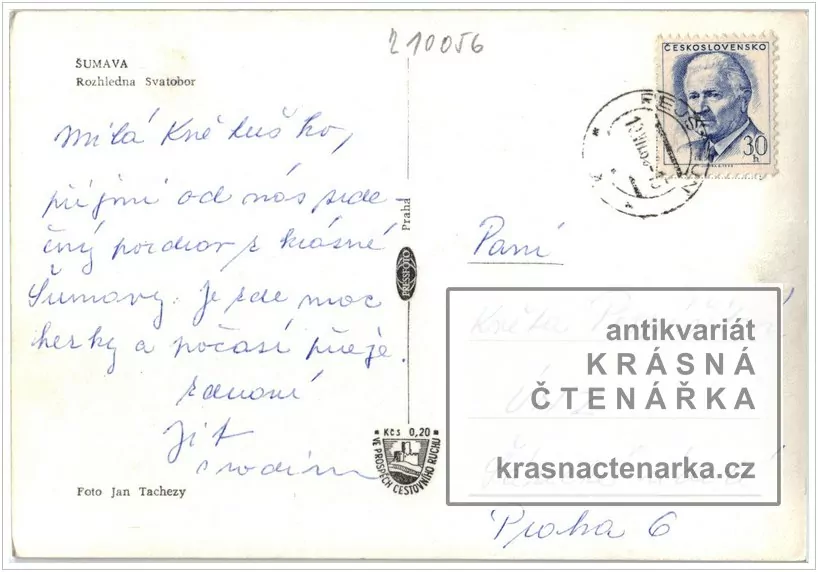 210056
ŠUMAVA
Rozhledna Svatobor
Milá Květuško,
přijmi od nás srde
čný pozdrav z krásné
Šumavy. Je zde moc
hezky a počasí přeje.
zdraví
Jit
s rodinou
Foto Jan Tachezy
PRESSFOTO Praha
Kčs 0,20
VE PROSPĚCH CESTOVNÍHO RUCHU
ČESKOSLOVENSKO
30 h
Paní
Květa
antikvariát
KRÁSNÁ
ČTENÁŘKA
krasnactenarka.cz
Praha 6